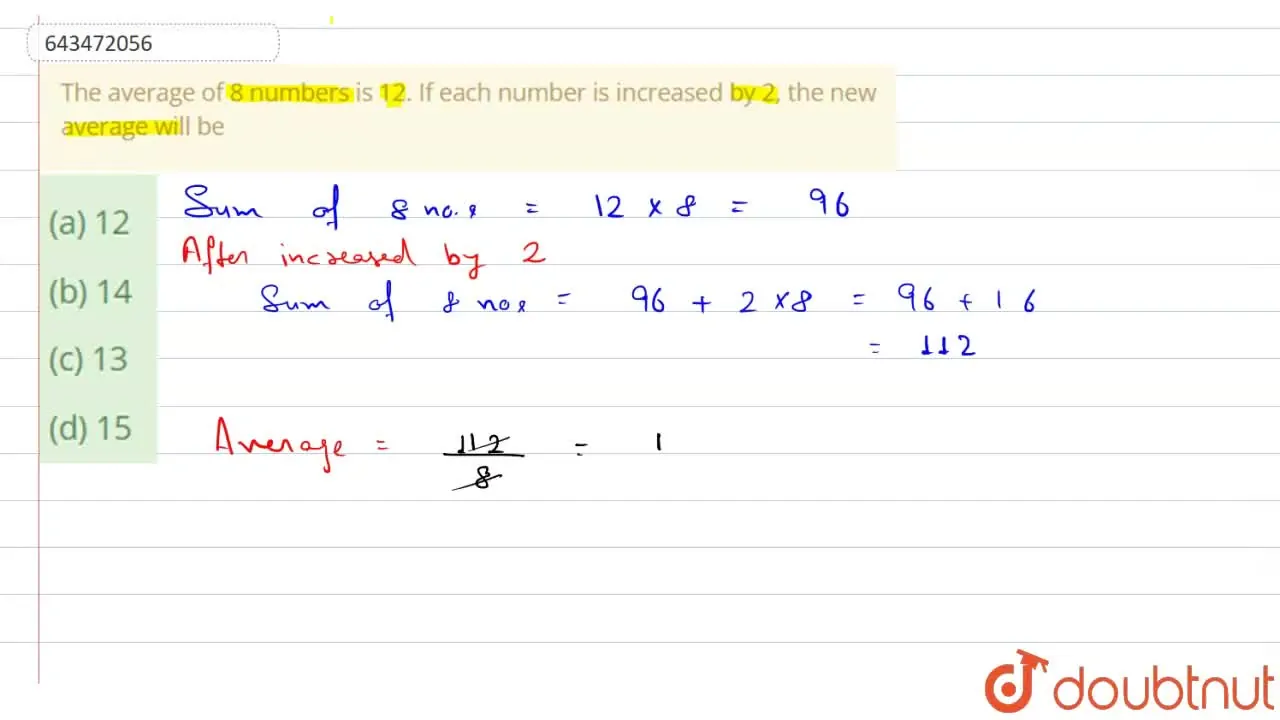 643472056
The average of 8 numbers is 12. If each number is increased by 2, the new
average will be
(a) 12
(b) 14
(c) 13
(d) 15
Sum of 8 no.s = 12 × 8 = 96
After increased by 2
Sum of 8 nos = 96 + 2 × 8 = 96 + 16
= 112
Average = 112/8 = 1
doubtnut